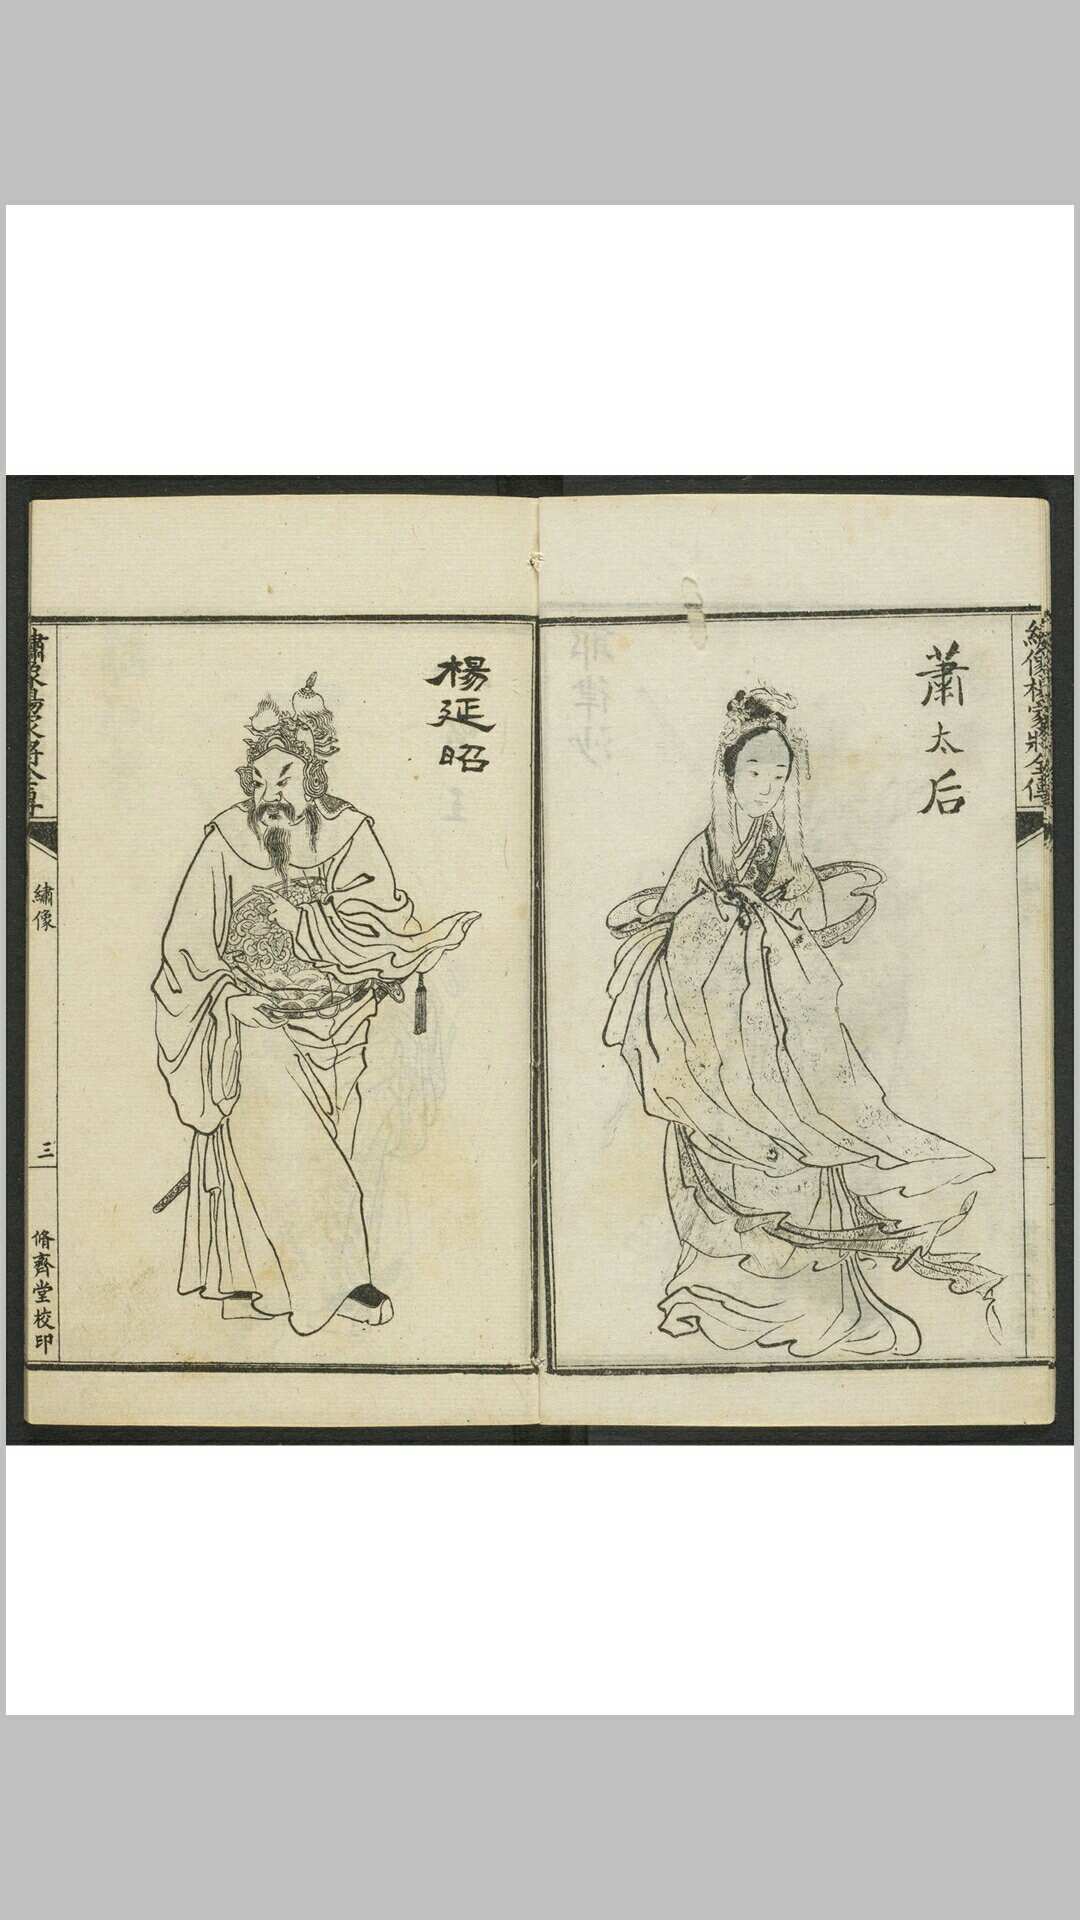 繡像楊家將全傳
蕭太后
楊延昭
繡像楊家將全傳
繡像
三
脩齊堂校印